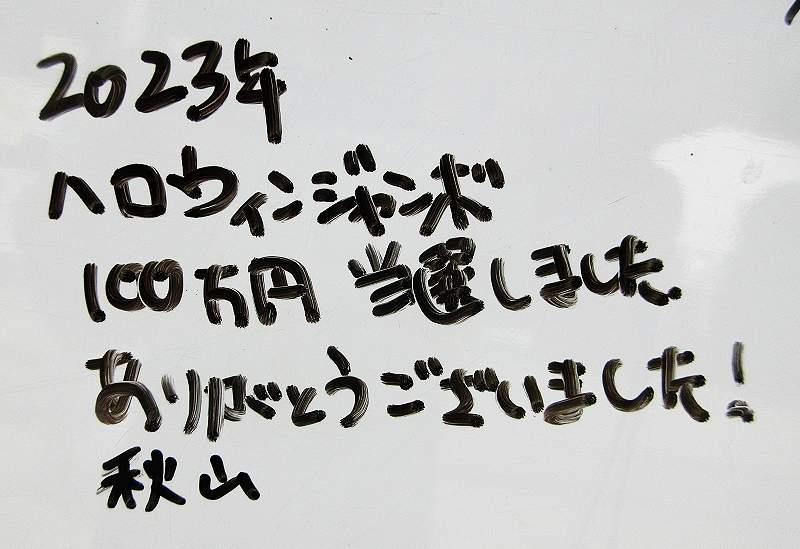 2023年
ハロウィンジャンボ
100万円 当選しました
ありがとうございました!
秋山